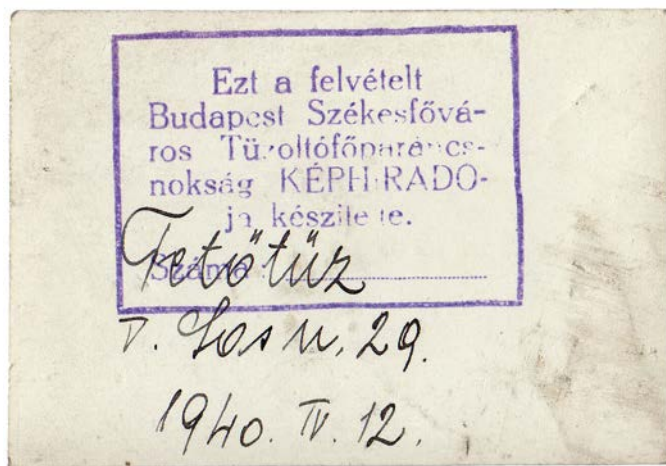 Ezt a felvételt
Budapest Székesfővá-
ros Tűzoltófőparancs-
nokság KÉPHIRADÓ-
ja készítette.
Száma:
Tetőtüz
V. Sas u. 29.
1940. IV. 12.